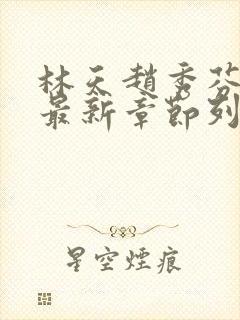 林天趙秀芬
最新章節列
星空煙痕